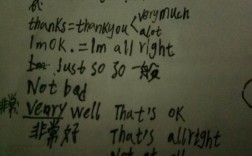 very much
thanks=thankyou< a lot
Im ok.=Im all right
Just so so 一般
Not bad
非常 Veary well That's ok
非常好 That's allright
Not at all